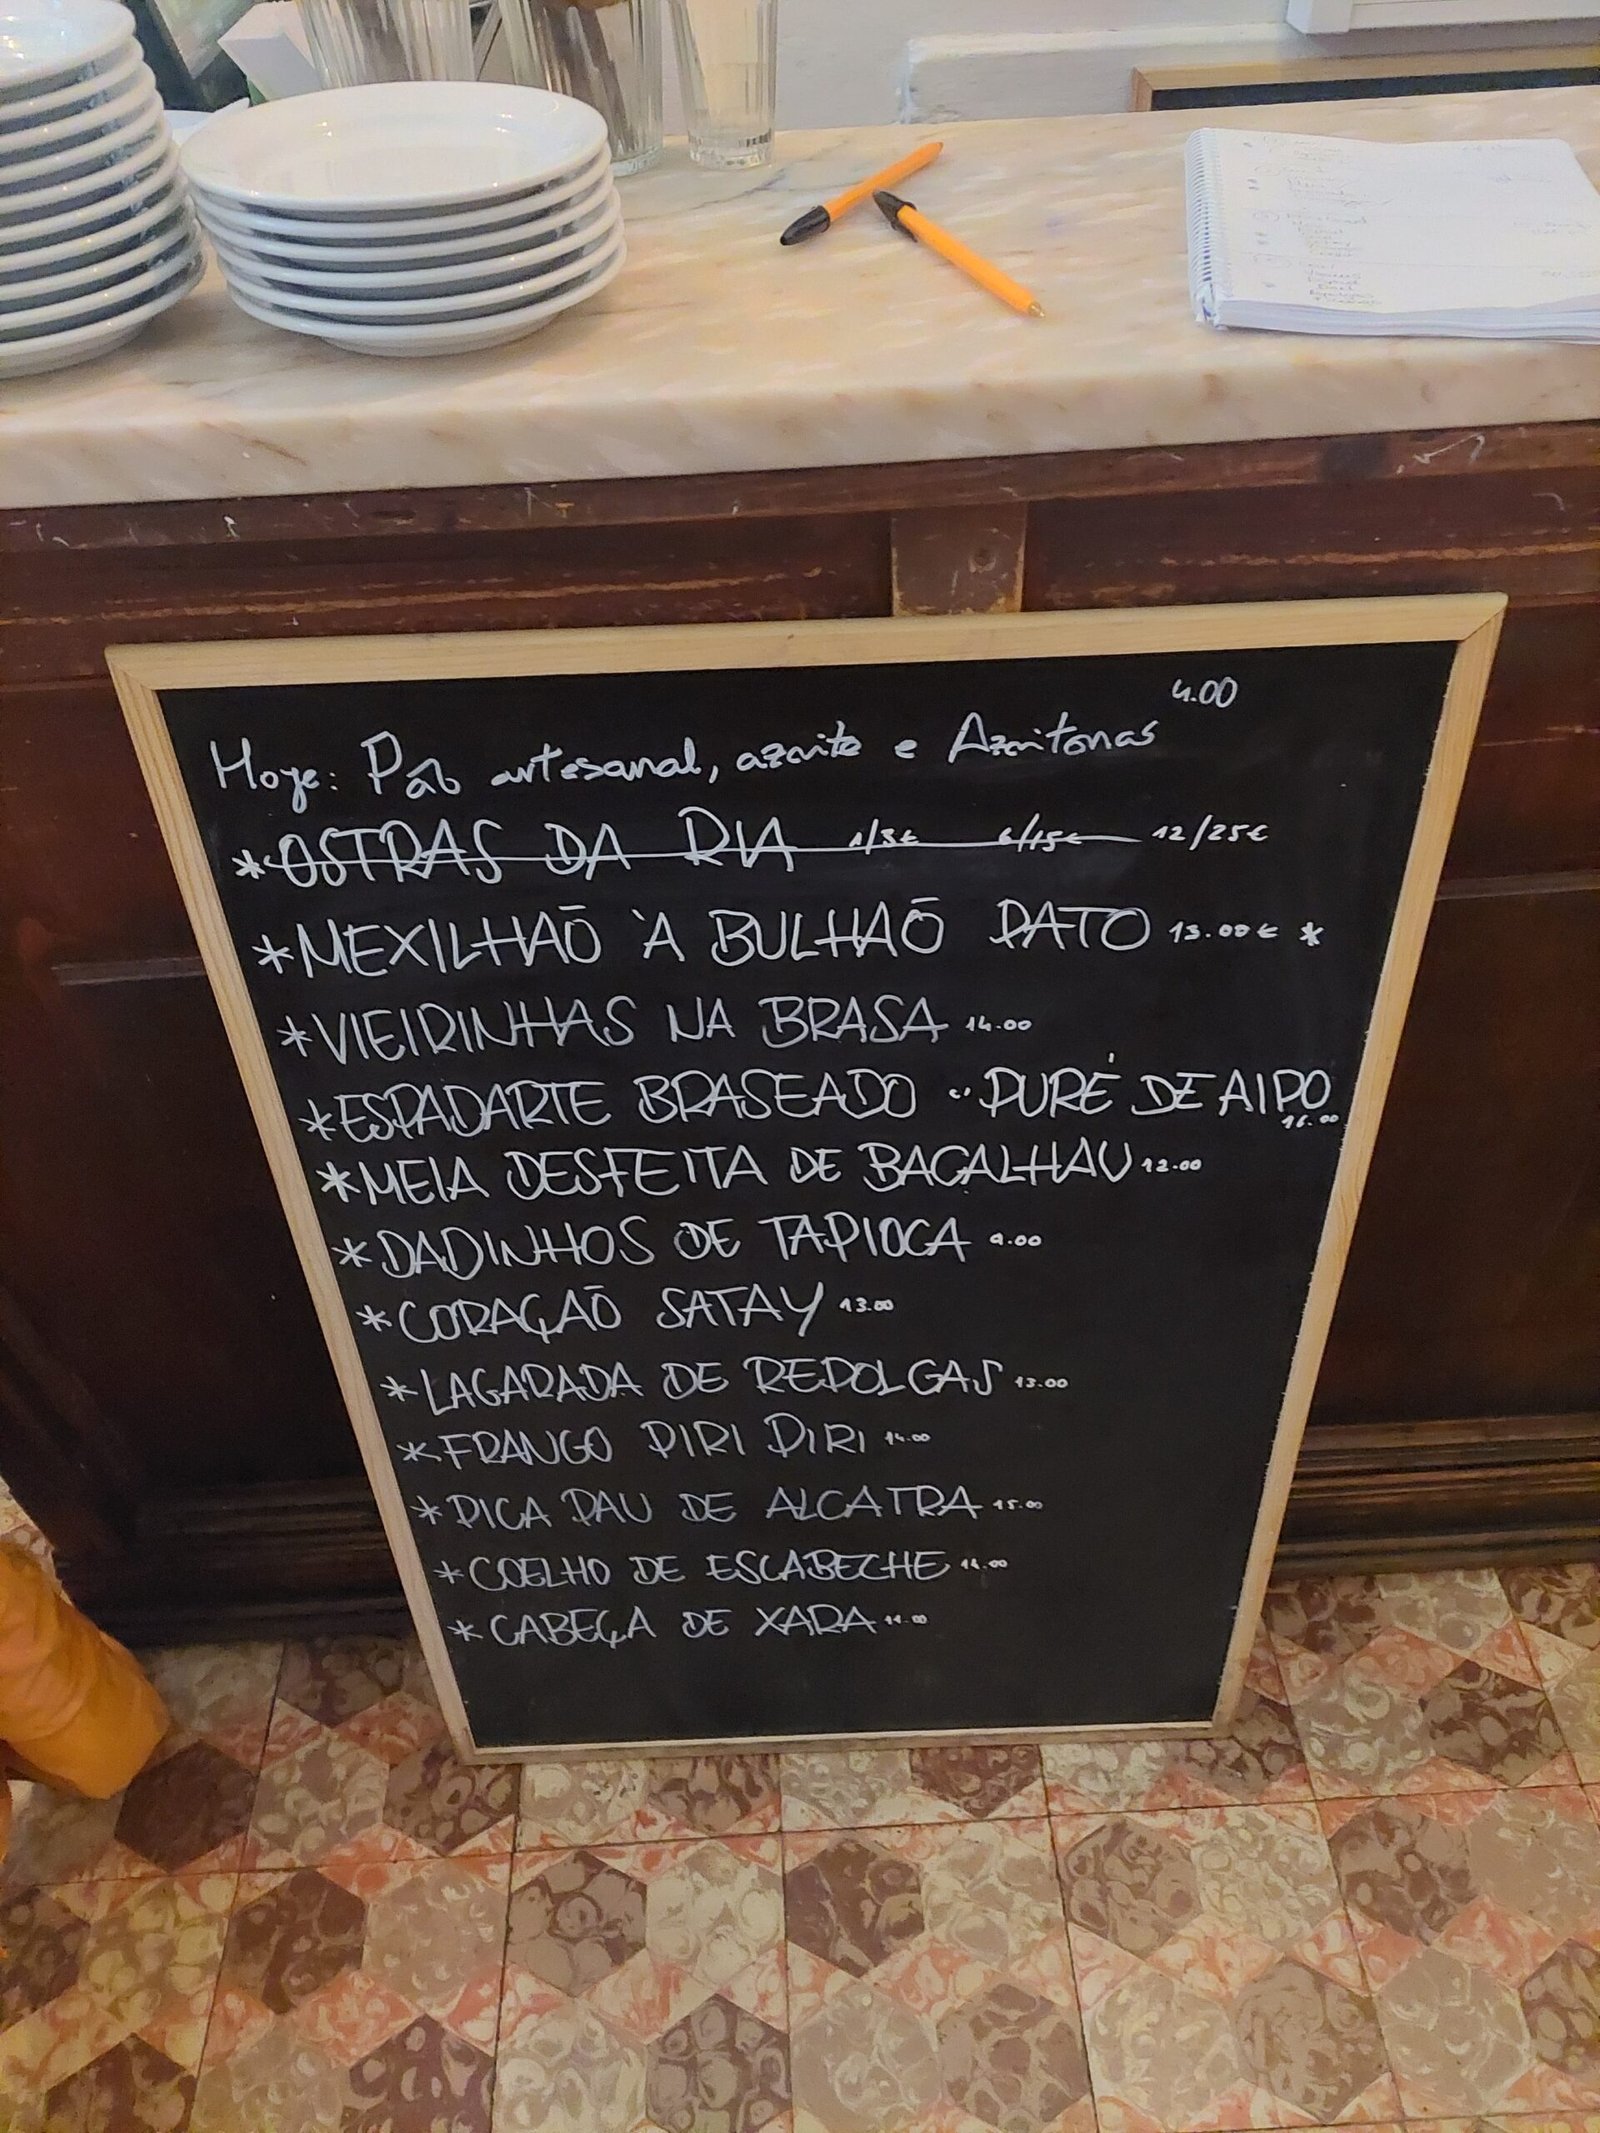 4.00
Hoje: Pão artesanal, azeite e Azeitonas
*OSTRAS DA RIA 1/3€ 6/15€ 12/25€
*MEXILHAÕ `A BULHAÕ PATO 13.00€ *
*VIEIRINHAS NA BRASA 14.00
*ESPADARTE BRASEADO " PURÉ DE AIPO
16.00
*MEIA DESFEITA DE BACALHAU 12.00
*DADINHOS DE TAPIOCA 9.00
*CORAÇAÕ SATAY 13.00
*LAGARADA DE REPOLGAS 13.00
*FRANGO PIRI PIRI 14.00
*PICA PAU DE ALCATRA 15.00
*COELHO DE ESCABECHE 14.00
*CABEÇA DE XARA 11.00